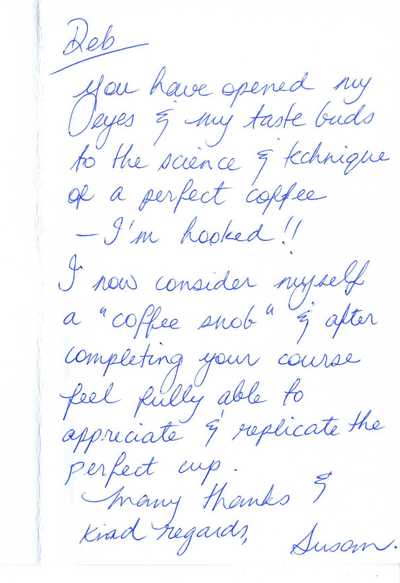 Deb
you have opened my
eyes & my taste buds
to the science & technique
of a perfect coffee
– I'm hooked!!
I now consider myself
a "coffee snob" & after
completing your course
feel fully able to
appreciate & replicate the
perfect cup.
Many thanks &
kind regards,
Susan.